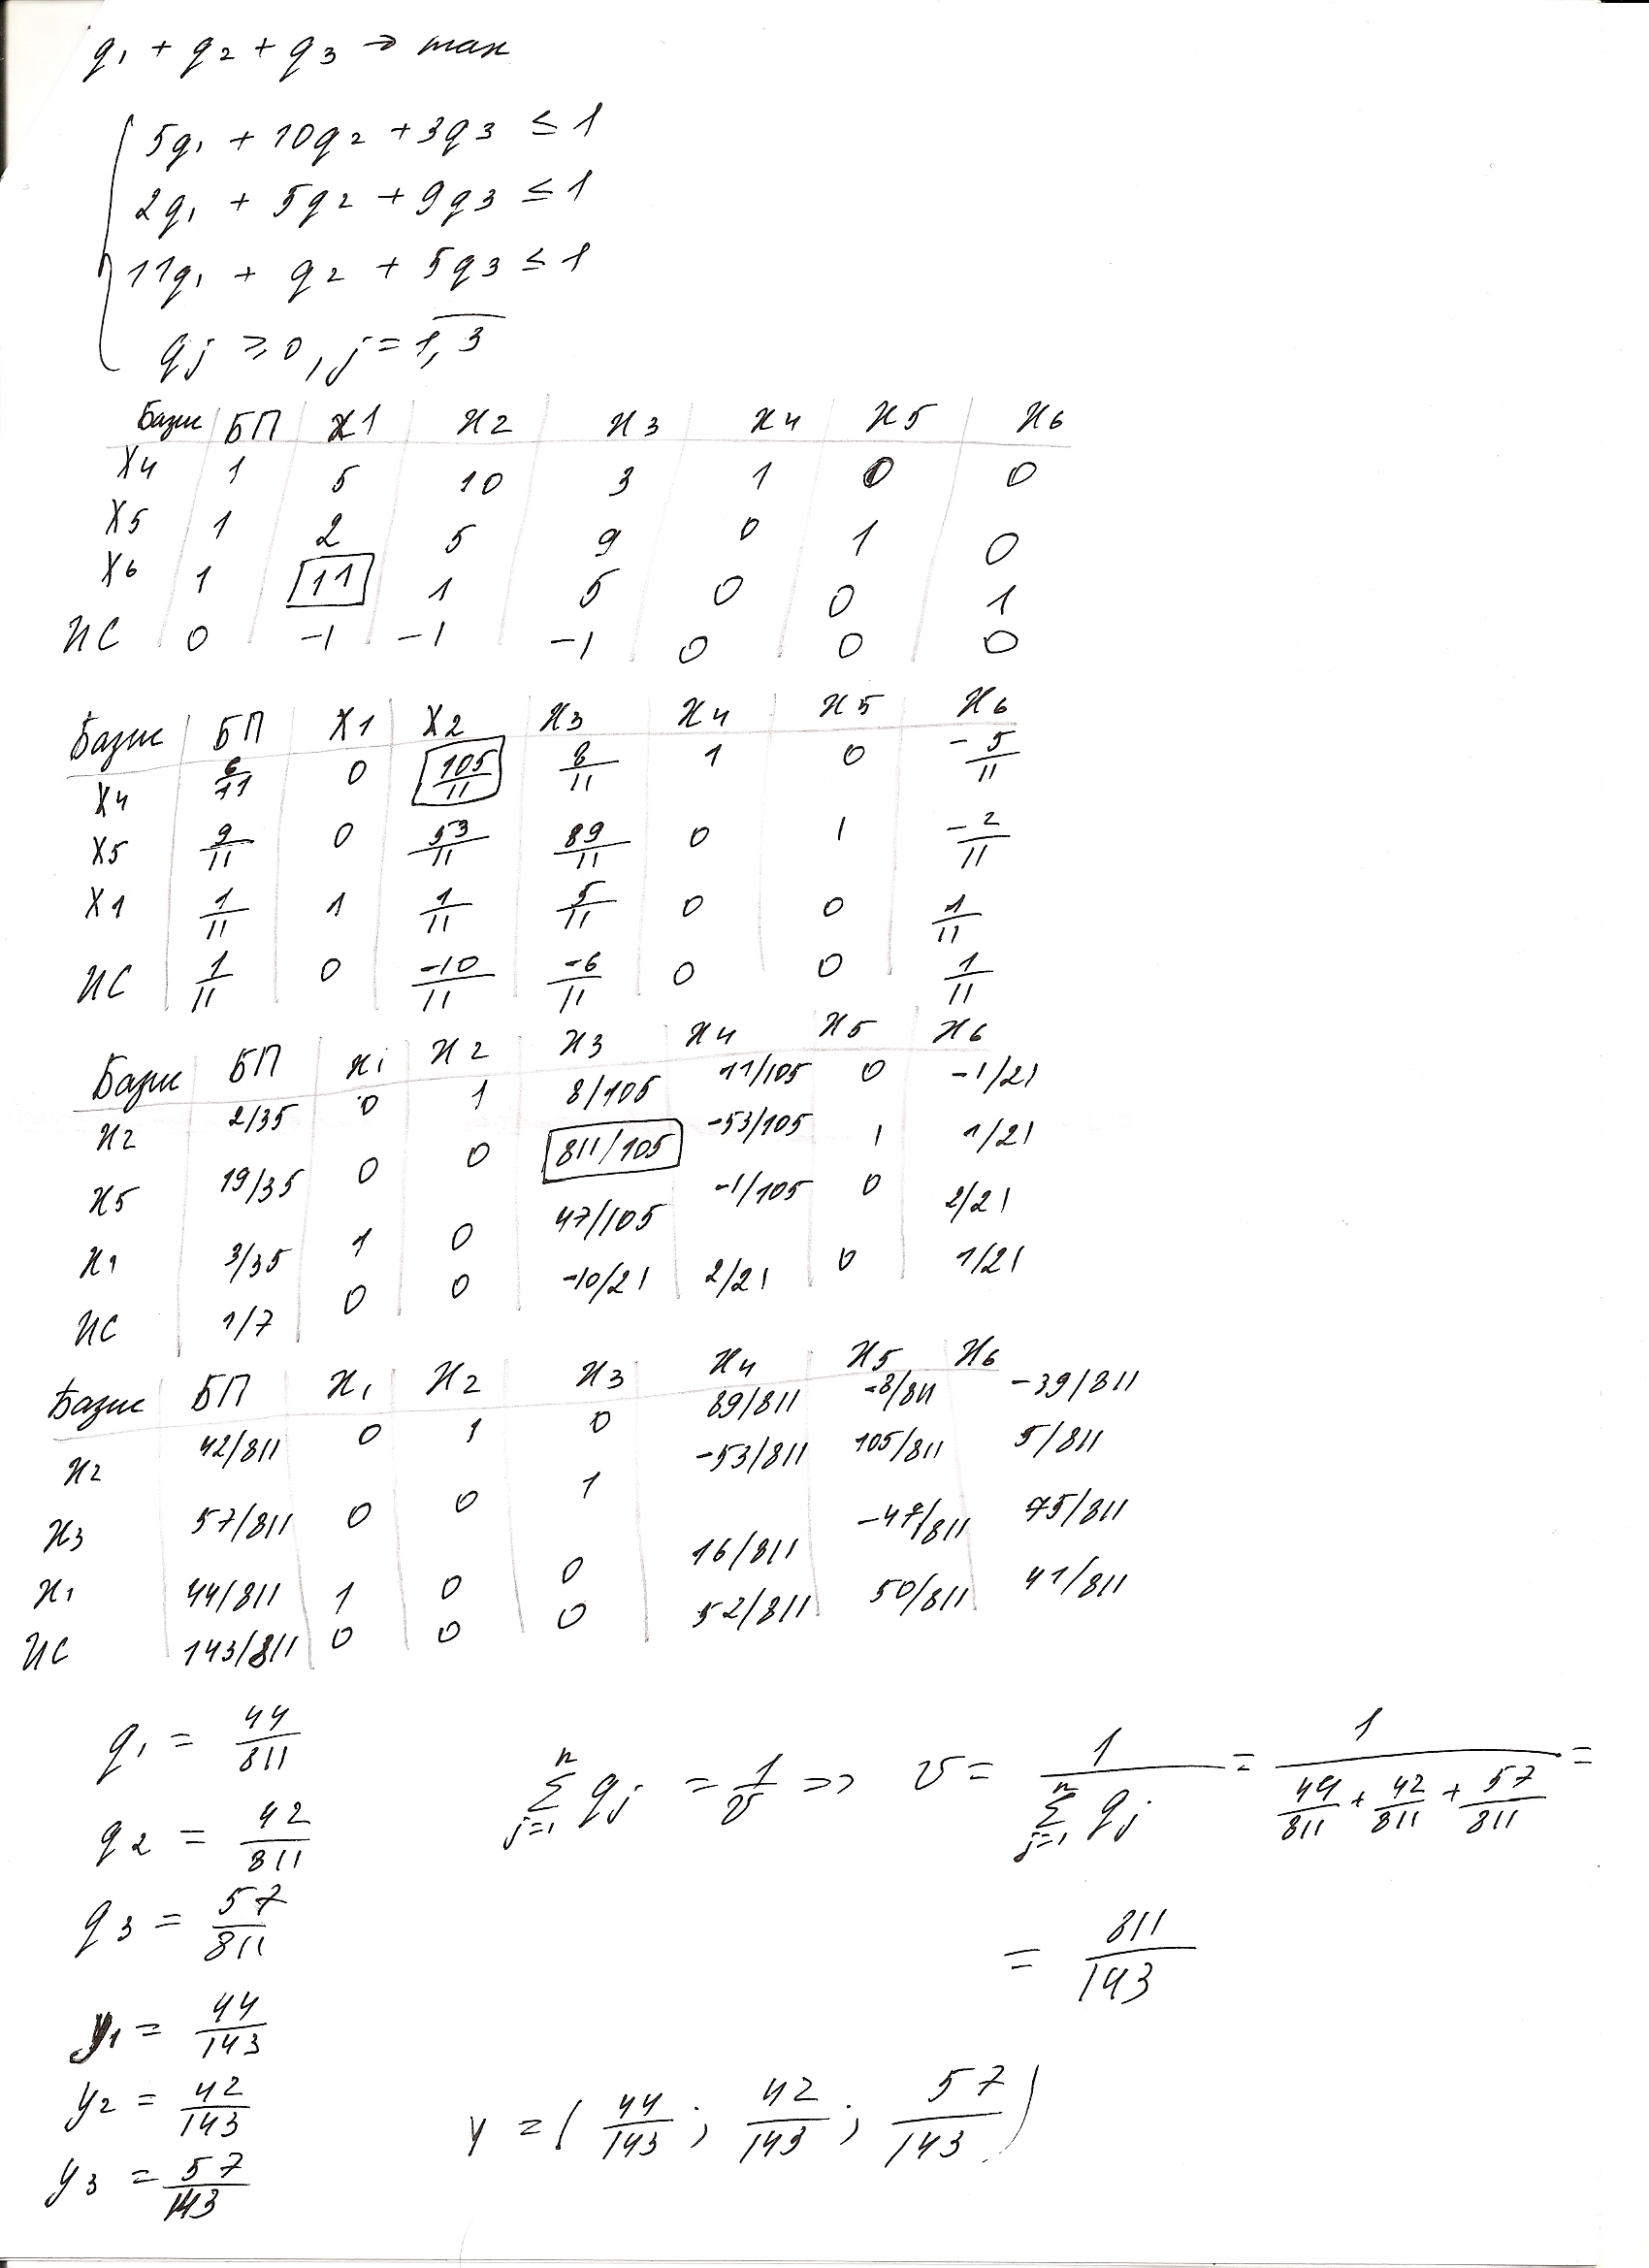 q₁ + q₂ + q₃ → max
5q₁ + 10q₂ + 3q₃ ≤ 1
2q₁ + 5q₂ + 9q₃ ≤ 1
11q₁ + q₂ + 5q₃ ≤ 1
qj ≥ 0, j = 1,3
Базис БП x1 x2 x3 x4 x5 x6
x4 1 5 10 3 1 0 0
x5 1 2 5 9 0 1 0
x6 1 11 1 5 0 0 1
ИС 0 -1 -1 -1 0 0 0
Базис БП x1 x2 x3 x4 x5 x6
x4 6/11 0 105/11 8/11 1 0 -5/11
x5 9/11 0 53/11 89/11 0 1 -2/11
x1 1/11 1 1/11 5/11 0 0 1/11
ИС 1/11 0 -10/11 -6/11 0 0 1/11
Базис БП x1 x2 x3 x4 x5 x6
x2 2/35 0 1 8/105 11/105 0 -1/21
x5 19/35 0 0 811/105 -53/105 1 1/21
x1 3/35 1 0 47/105 -1/105 0 2/21
ИС 1/7 0 0 -10/21 2/21 0 1/21
Базис БП x1 x2 x3 x4 x5 x6
x2 42/811 0 1 0 89/811 -8/811 -39/811
x3 57/811 0 0 1 -53/811 105/811 5/811
x1 44/811 1 0 0 16/811 -47/811 75/811
ИС 143/811 0 0 0 52/811 50/811 41/811
q₁ = 44/811
q₂ = 42/811
q₃ = 57/811
n∑j=1 qj = 1/v => v = 1/(n∑j=1 qj) = 1/(44/811 + 42/811 + 57/811) =
= 811/143
y1 = 44/143
y2 = 42/143
y3 = 57/143
y = (44/143; 42/143; 57/143)